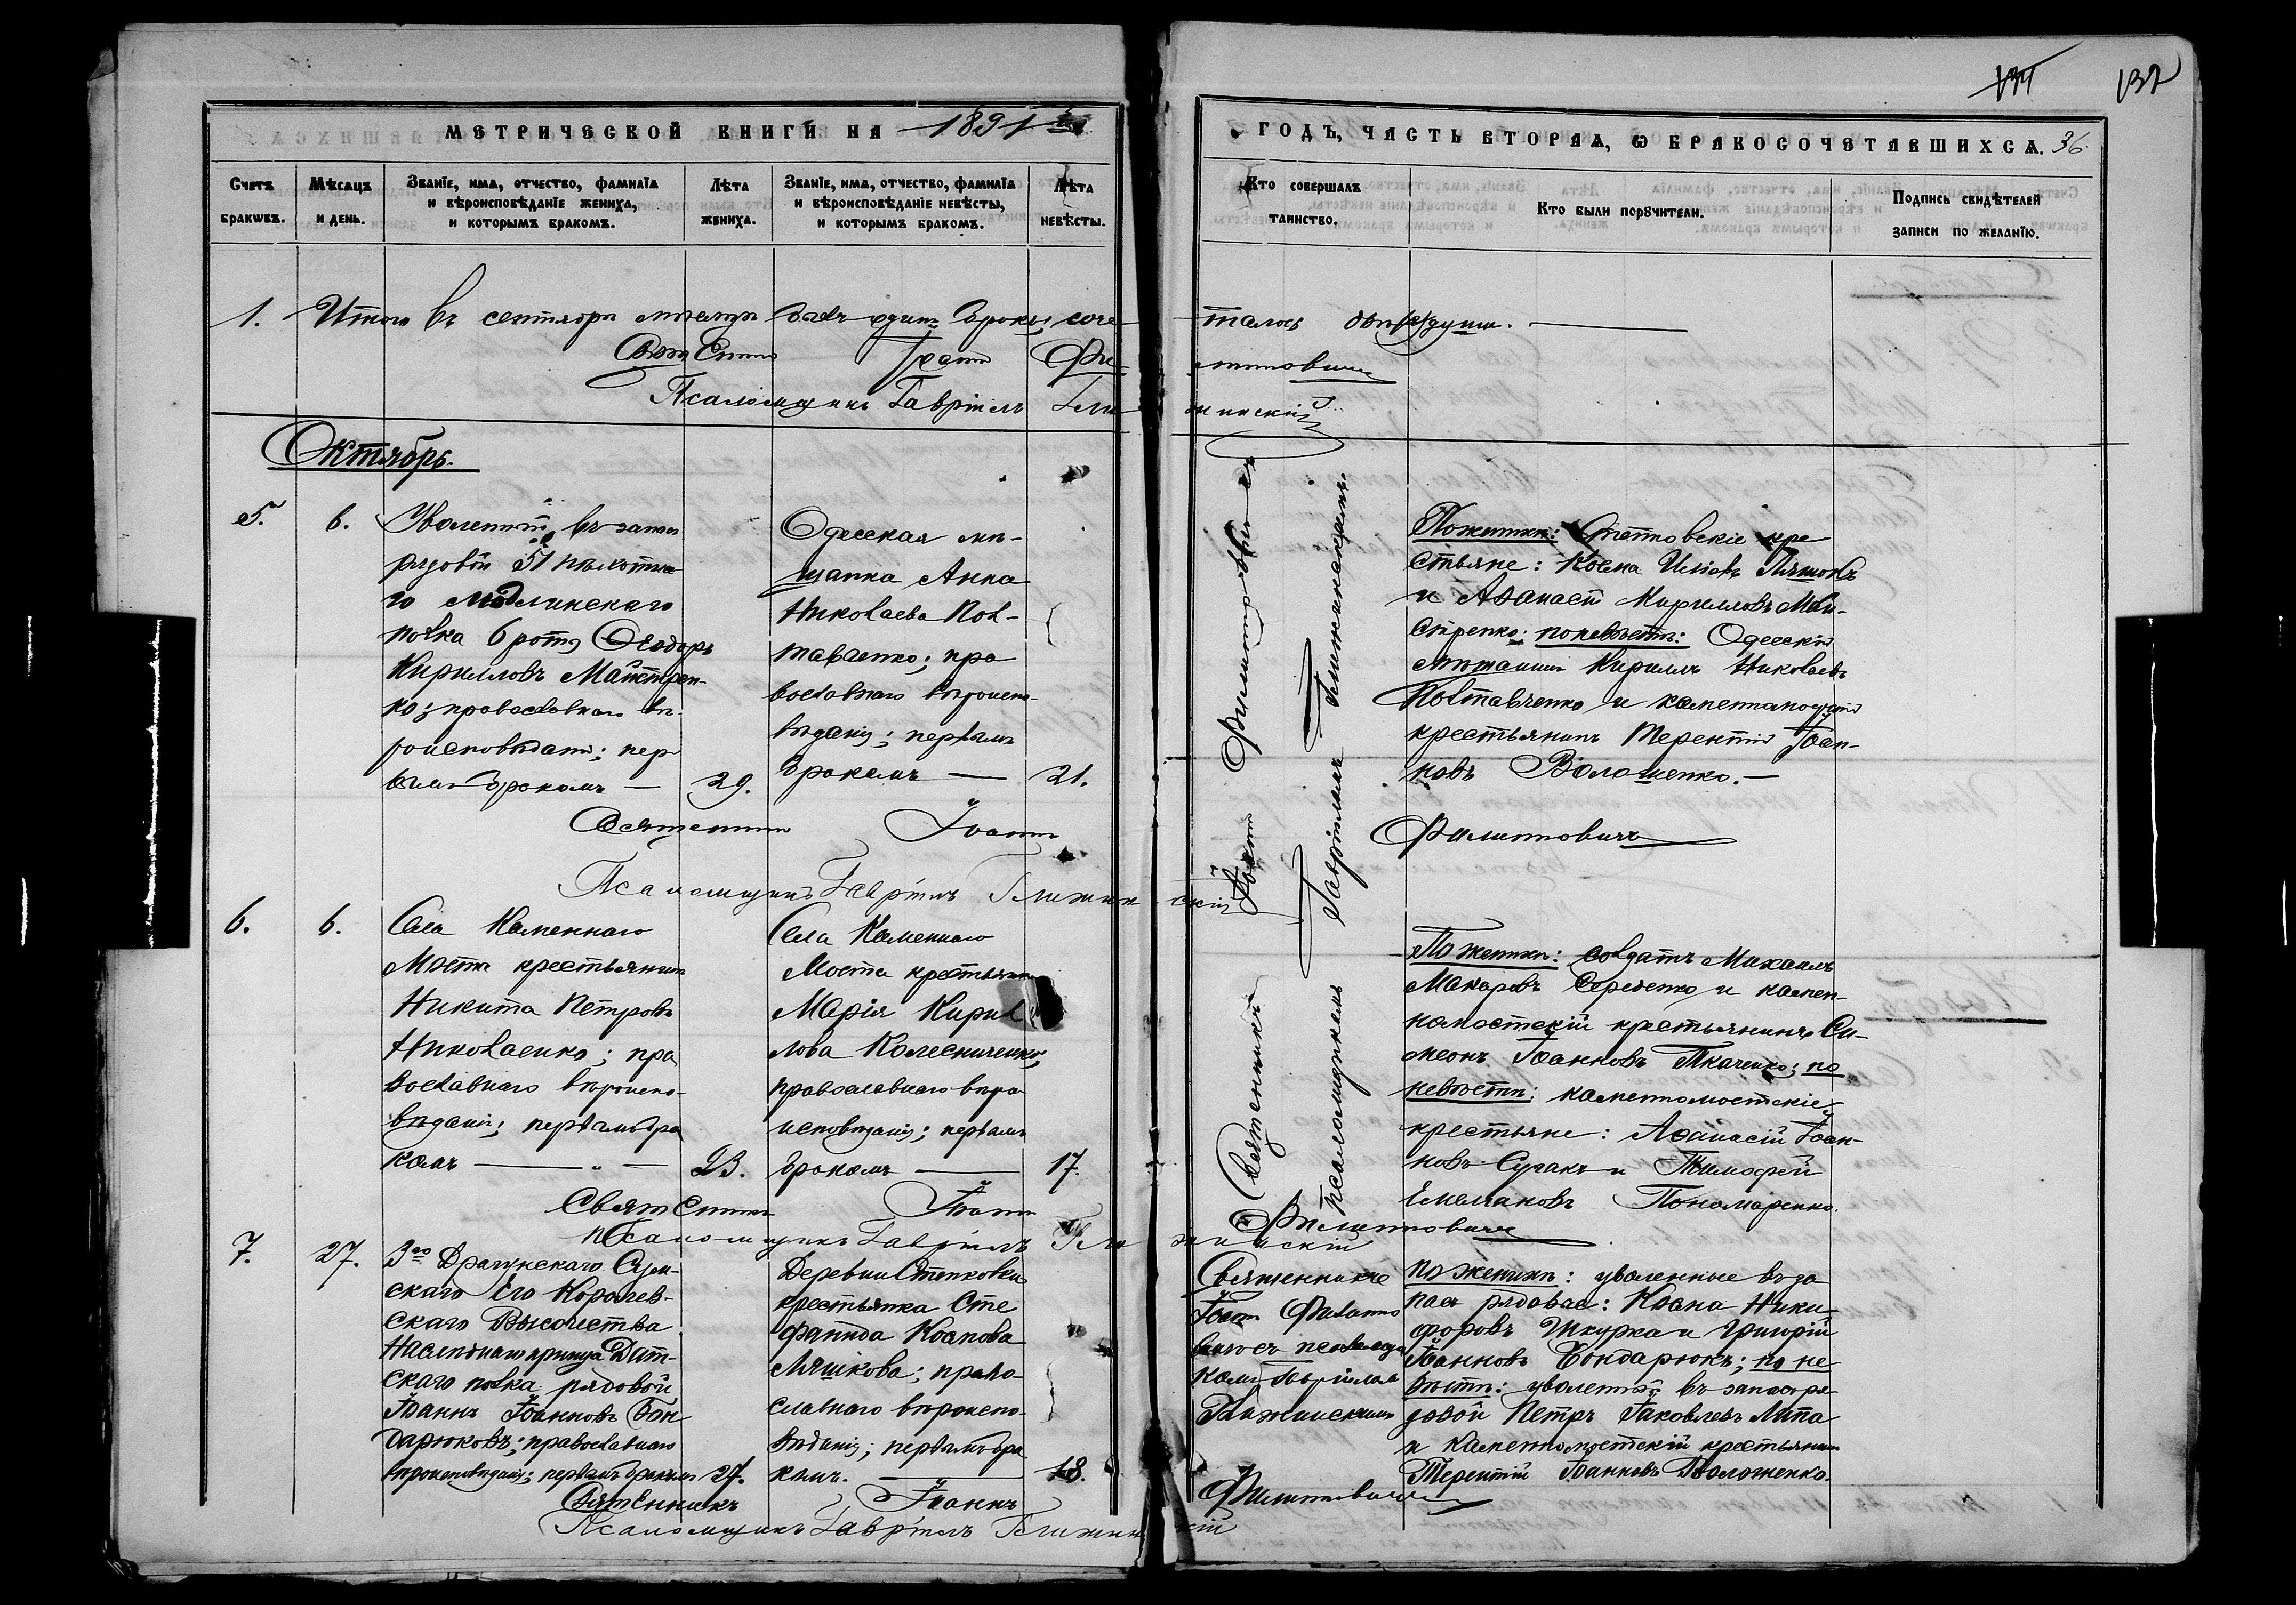 134 137
МЕТРИЧЕСКОЙ КНИГИ НА 1891й
ГОДЪ, ЧАСТЬ ВТОРАѦ, Ѡ БРАКОСОЧЕТАВШИХСѦ. 36.
Счетъ браковъ.
Мѣсяцъ и день.
Званіе, имѧ, отчество, фамиліѧ и вѣроисповѣданіе жениха, и которымъ бракомъ.
Лѣта жениха.
Званіе, имѧ, отчество, фамиліѧ и вѣроисповѣданіе невѣсты, и которымъ бракомъ.
Лѣта невѣсты.
Кто совершалъ таинство.
Кто были порꙋчители.
Подпись свидѣтелей записи по желанію.
1. Итого въ сентябрѣ мѣсяцѣ былъ одинъ бракъ, соче
талось двѣ души.
Іоаннъ Фи
липповичъ
Псаломщикъ Гавріилъ Гли
жинскій
Октябрь.
5.
6.
Уволенный въ запасъ
рядовой 51 пѣхотна
го
полка 6 роты Ѳеодоръ
Кирилловъ Майстрен-
ко; православнаго вѣ-
роисповѣданія; пер
вымъ бракомъ — 29.
Одесская мѣ-
щанка Анна
Николаева Пол-
тавченко; пра
вославнаго вѣроиспо-
вѣданія; первымъ
бракомъ — 21.
Священникъ Іоаннъ Филипповичъ съ
Псаломщикомъ Гавріиломъ
По женихѣ: кре
стьяне: Косма Ляшокъ
и Аѳанасій Кирилловъ Май-
стренко; по невѣстѣ: Одесскій
мѣщанинъ Кириллъ Николаевъ
Полтавченко и каменномостскій
крестьянинъ Терентій Іоан-
новъ Волошенко. —
Священникъ Іоаннъ Филипповичъ
Псаломщикъ Гавріилъ Глижинскій
6.
6.
Села Каменнаго
Моста крестьянинъ
Никита Петровъ
Николаенко; пра
вославнаго вѣроиспо-
вѣданія; первымъ бра
комъ — " — 23.
Села Каменнаго
Моста крестьянка
Марія Кирил
лова Колесниченко;
православнаго вѣро
исповѣданія; первымъ
бракомъ — 17.
По женихѣ: солдатъ Михаилъ
Макаровъ Середенко и камен-
номостскій крестьянинъ Си-
меонъ Іоанновъ Ткаченко; по
невѣстѣ: каменномостскіе
крестьяне: Аѳанасій Іоан-
новъ Сугакъ и Тимоѳей
Емеліановъ Пономаренко.
Священникъ Іоаннъ Филипповичъ
Псаломщикъ Гавріилъ Глижинскій
7.
27.
3го Драгунскаго Сум-
скаго Его Королев-
скаго Высочества
Наслѣднаго принца Дат-
скаго полка рядовой
Іоаннъ Іоанновъ Бон
дарюковъ; православнаго
вѣроисповѣданія; первымъ бракомъ 27.
Деревни Степковки
крестьянка Сте
фанида Космова
Ляшкова; право-
славнаго вѣроиспо-
вѣданія; первымъ бра
комъ. — 18.
Священникъ
Іоаннъ Филиппо
вичъ съ псаломщи
комъ Гавріиломъ
Глижинскимъ
По женихѣ: уволенные въ за
пасъ рядовые: Косма Ники-
форовъ Шкурка и Григорій
Іоанновъ Бондарюкъ; по не
вѣстѣ: уволенный въ запасъ ря
довой Петръ Іаковлевъ Липа
и каменномостскій крестьянинъ
Терентій Іоанновъ Волошенко.
Священникъ Іоаннъ Филипповичъ
Псаломщикъ Гавріилъ Глижинскій